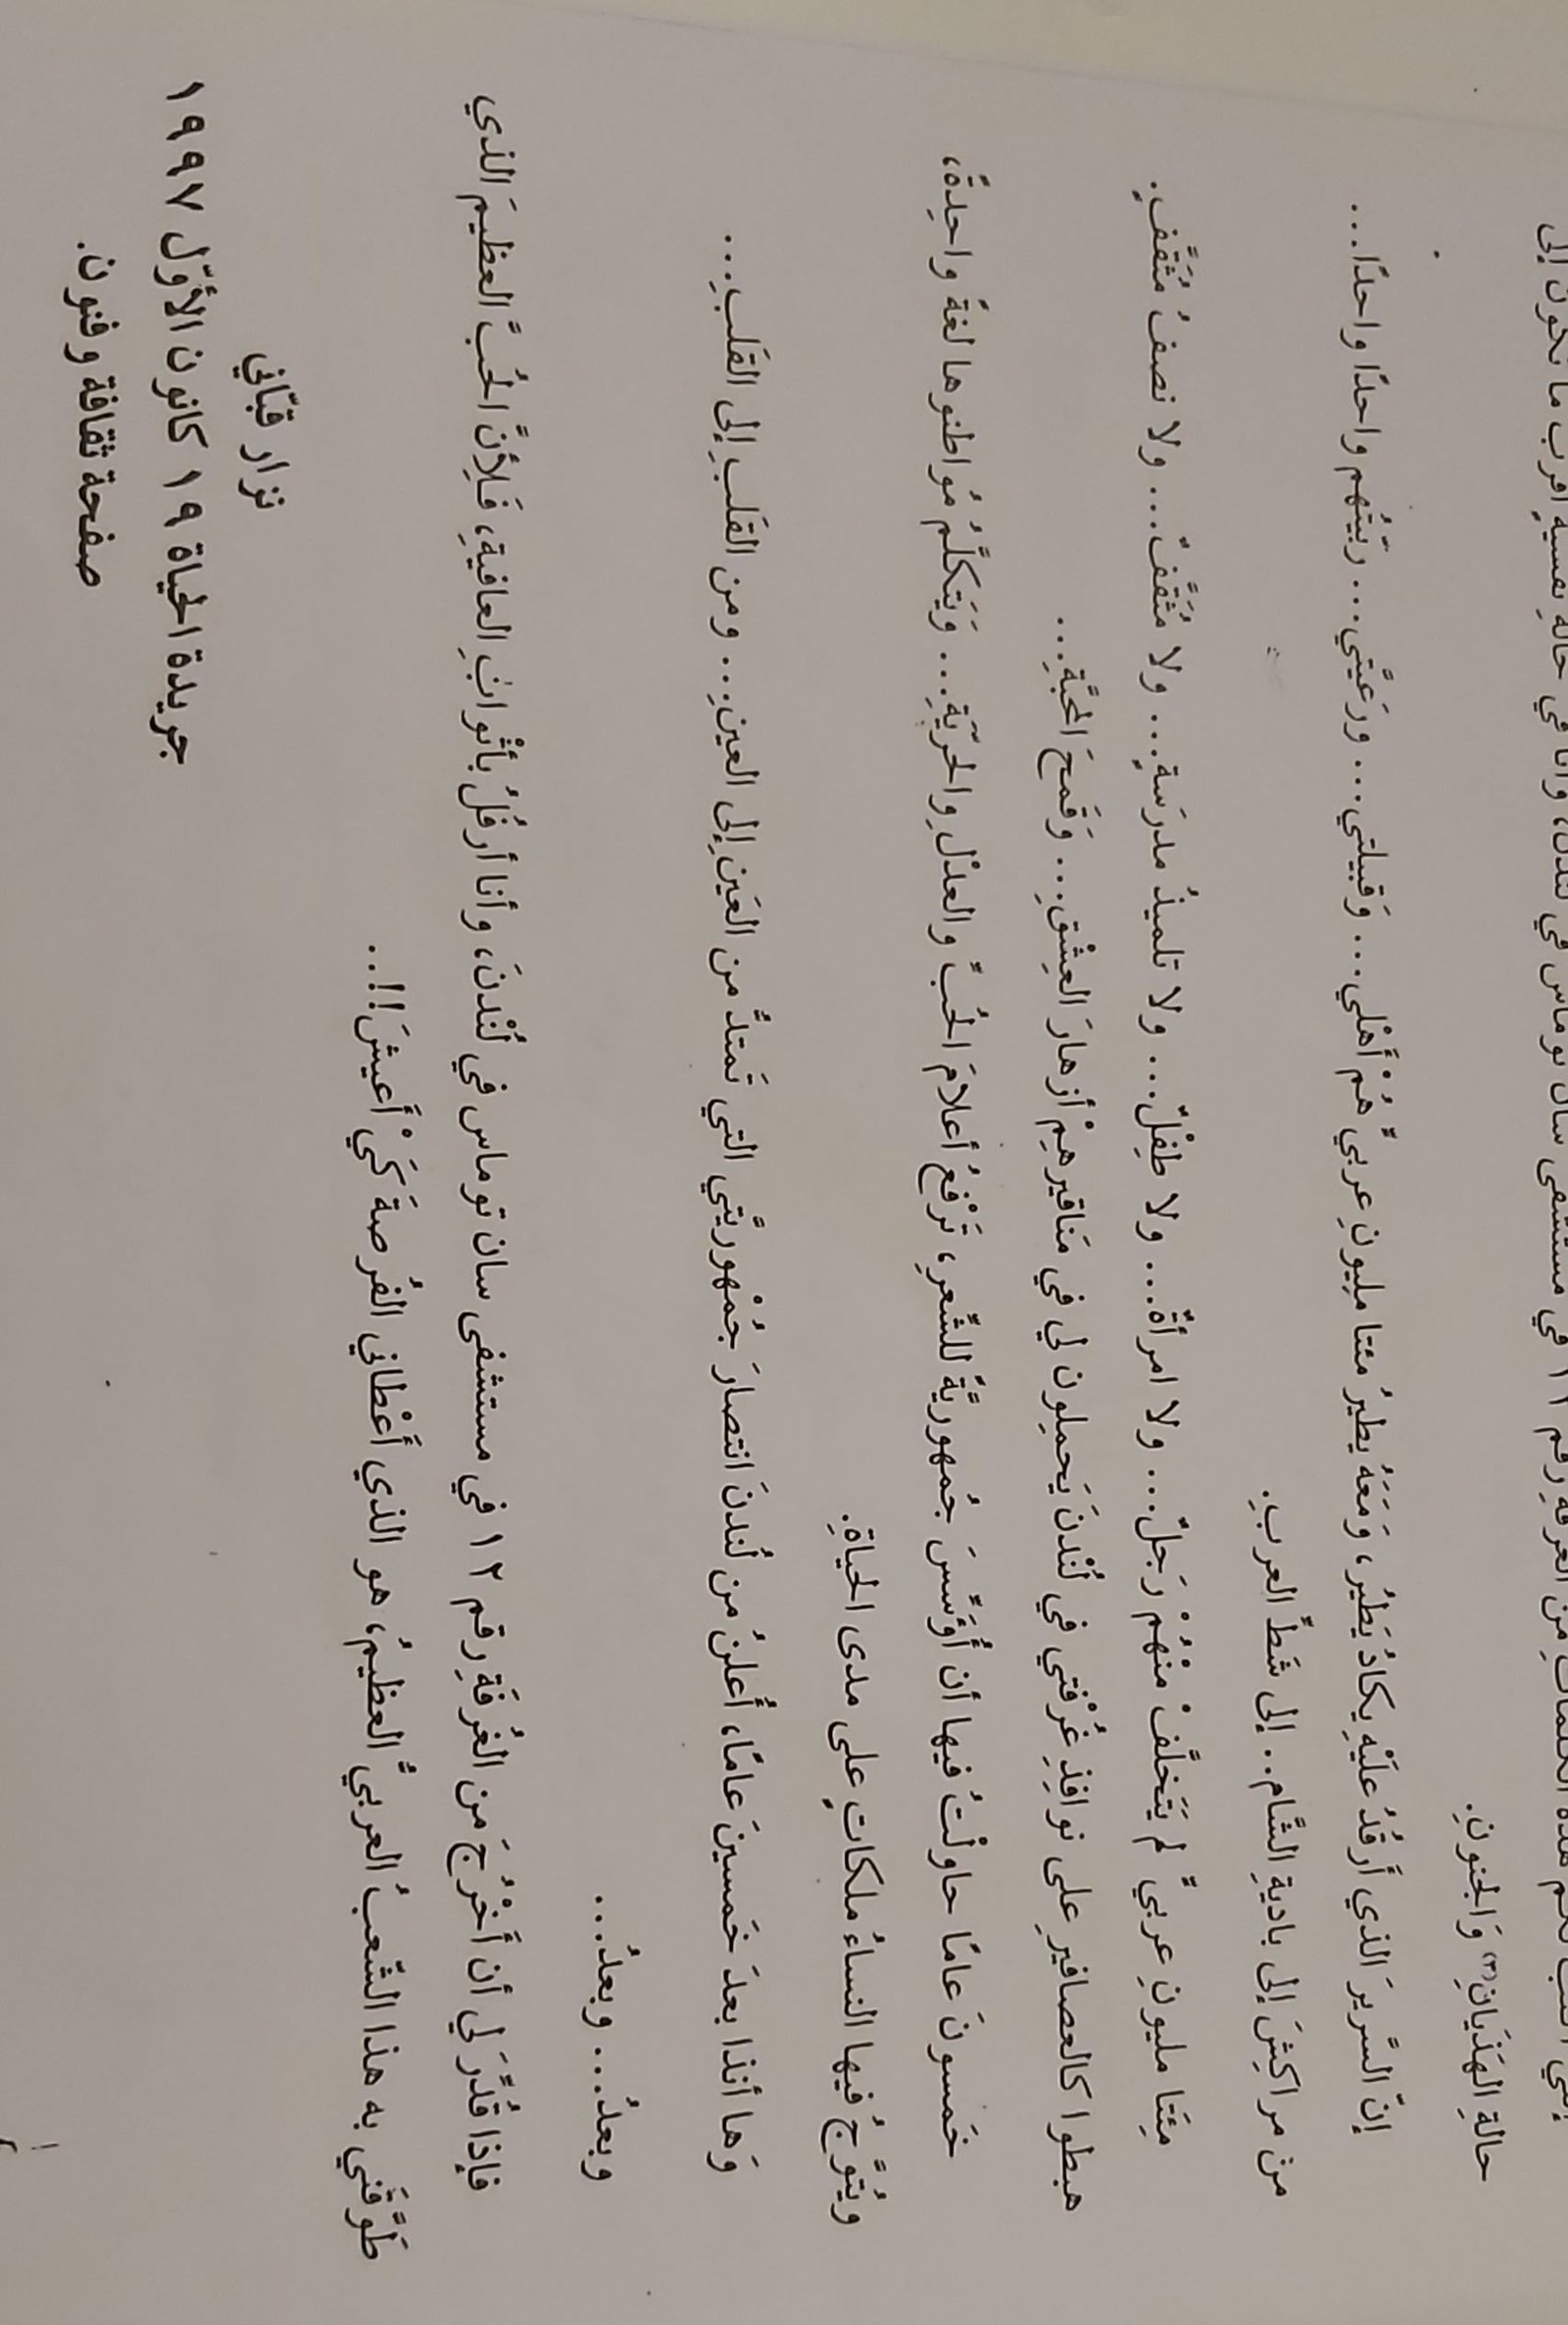 إنني أكتب لكم هذه الكلمات من الغرفة رقم ١٢ في مستشفى سان توماس في لندن، وأنا في حالة نفسية أقرب ما تكون إلى
حالةِ الهَذَيانِ(٣) وَالجنونِ.
إنّ السَّريرَ الذي أَرقُدُ علَيْهِ يكادُ يَطيُر، وَمَعَهُ يطيرُ مئتا مليونِ عربيٍّ هُمْ أَهْلي... وَقبيلتي... ورَعيَّتي... ربّيتُهم واحدًا واحدًا...
من مراكِشَ إلى باديةِ الشَّام.. إلى شَطِّ العربِ.
مِئَتا مليونِ عربيٍّ لم يَتَخلَّفْ منْهُمْ رَجلٌ... ولا امرأةٌ... ولا طِفْلٌ... ولا تلميذُ مدرَسةٍ... ولا مُثَقَّفٌ... ولا نصفُ مُثَقَّفٍ.
هبطوا كالعصافيرِ على نوافِذِ غُرْفتي في لُنْدنَ يَحملون لي في مَناقيرهِمْ أزهارَ العِشْقِ... وَقَمحَ المحَبَّةِ...
خَمسونَ عامًا حاولْتُ فيها أن أُؤَسِّسَ جُمهوريَّةً للشِّعرِ، تَرْفعُ أعلامَ الحُبِّ والعدْلِ والحرّيّةِ... وَيَتكلَّمُ مُواطنوها لغةً واحِدةً،
ويُتوَّجُ فيها النساءُ ملكاتٍ على مدى الحياةِ.
وَها أنذا بعدَ خَمسينَ عامًا، أُعلنُ من لُندنَ انتصارَ جُمْهوريَّتي التي تَمتدُّ من العَينِ إلى العينِ... ومن القَلبِ إلى القَلبِ...
وبعدُ... وبعدُ...
فإذا قُدِّرَ لي أن أَخْرُجَ من الغُرفَةِ رقم ١٢ في مستشفى سان توماس في لُنْدنَ، وأنا أرفُلُ بأثْوابِ العافيةِ، فَلِأنَّ الحُبَّ العظيمَ الذي
طَوَّقَني به هذا الشّعبُ العربيُّ العظيمُ، هو الذي أَعْطاني الفُرصةَ كَيْ أَعيشَ!!..
نزار قبّاني
جريدة الحياة ١٩ كانون الأوّل ١٩٩٧
صفحة ثقافة وفنون.